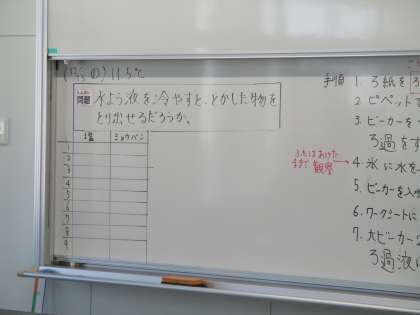 11.5℃
問題
水よう液を冷やすと、とかした物を
とり出せるだろうか。
塩 ミョウバン
1
2
3
4
5
6
7
8
9
手順 1 ろ紙を
2 ピペットで
3. ビーカーを
ろ過をす
ふたはあけた
ままで観察
4 氷に水を
5. ビーカーを入
6. ワークシートに
7. 大ビーカー
ろ過液